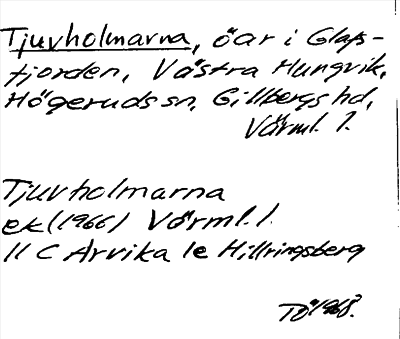 Tjuvholmarna, öar i Glafs-
fjorden, Västra Hungvik,
Högeruds sn, Gillbergs hd,
Värml. l.
Tjuvholmarna
ek (1966) Värml. l.
11 C Arvika 1e Hillringsberg
1968